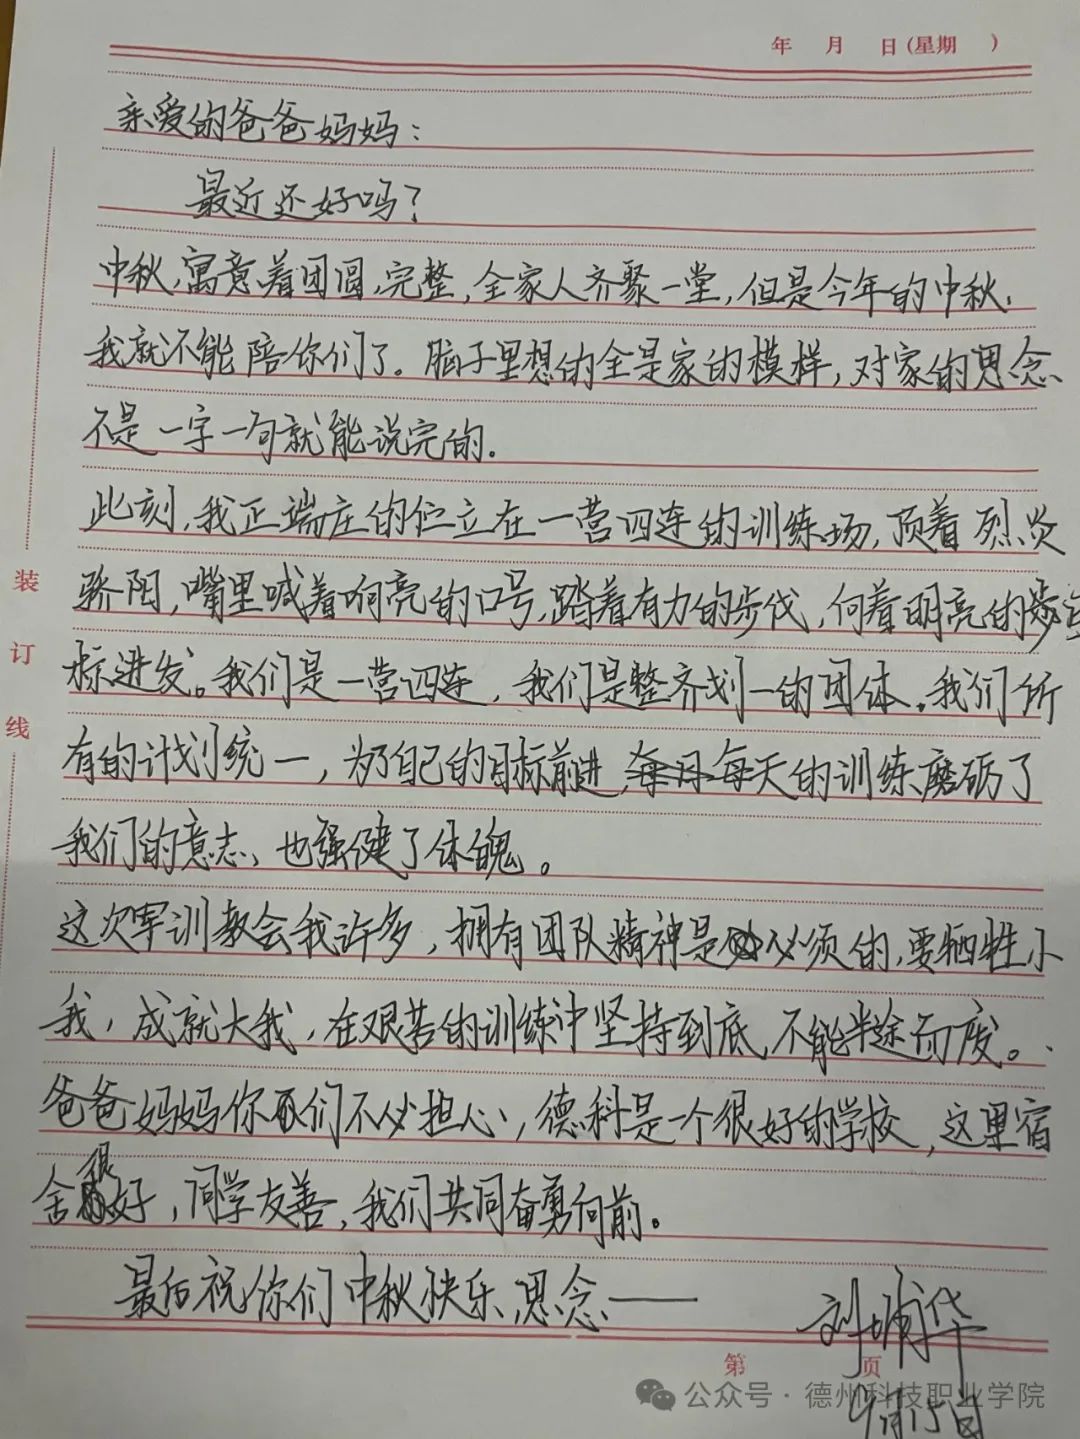 年 月 日(星期 )
亲爱的爸爸妈妈：
最近还好吗？
中秋，寓意着团圆，完整，全家人齐聚一堂，但是今年的中秋，
我就不能陪你们了。脑子里想的全是家的模样，对家的思念
不是一字一句就能说完的.
此刻，我正端庄的伫立在一营四连的训练场，顶着烈炎
骄阳，嘴里喊着响亮的口号，踏着有力的步伐，向着明亮的
标进发。我们是一营四连，我们是整齐划一的团体。我们所
有的计划统一，为了自己的目标前进，每天的训练磨砺了
我们的意志、也强健了体魄。
这次军训教会我许多，拥有团队精神是必须的，要牺牲小
我，成就大我，在艰苦的训练中坚持到底，不能半途而废。
爸爸妈妈你们不必担心，德科是一个很好的学校，这里宿
舍很好，同学友善，我们共同奋勇向前。
最后祝你们中秋快乐，思念——
刘 华
9月15日
第 页
装
订
线
公众号·德州科技职业学院